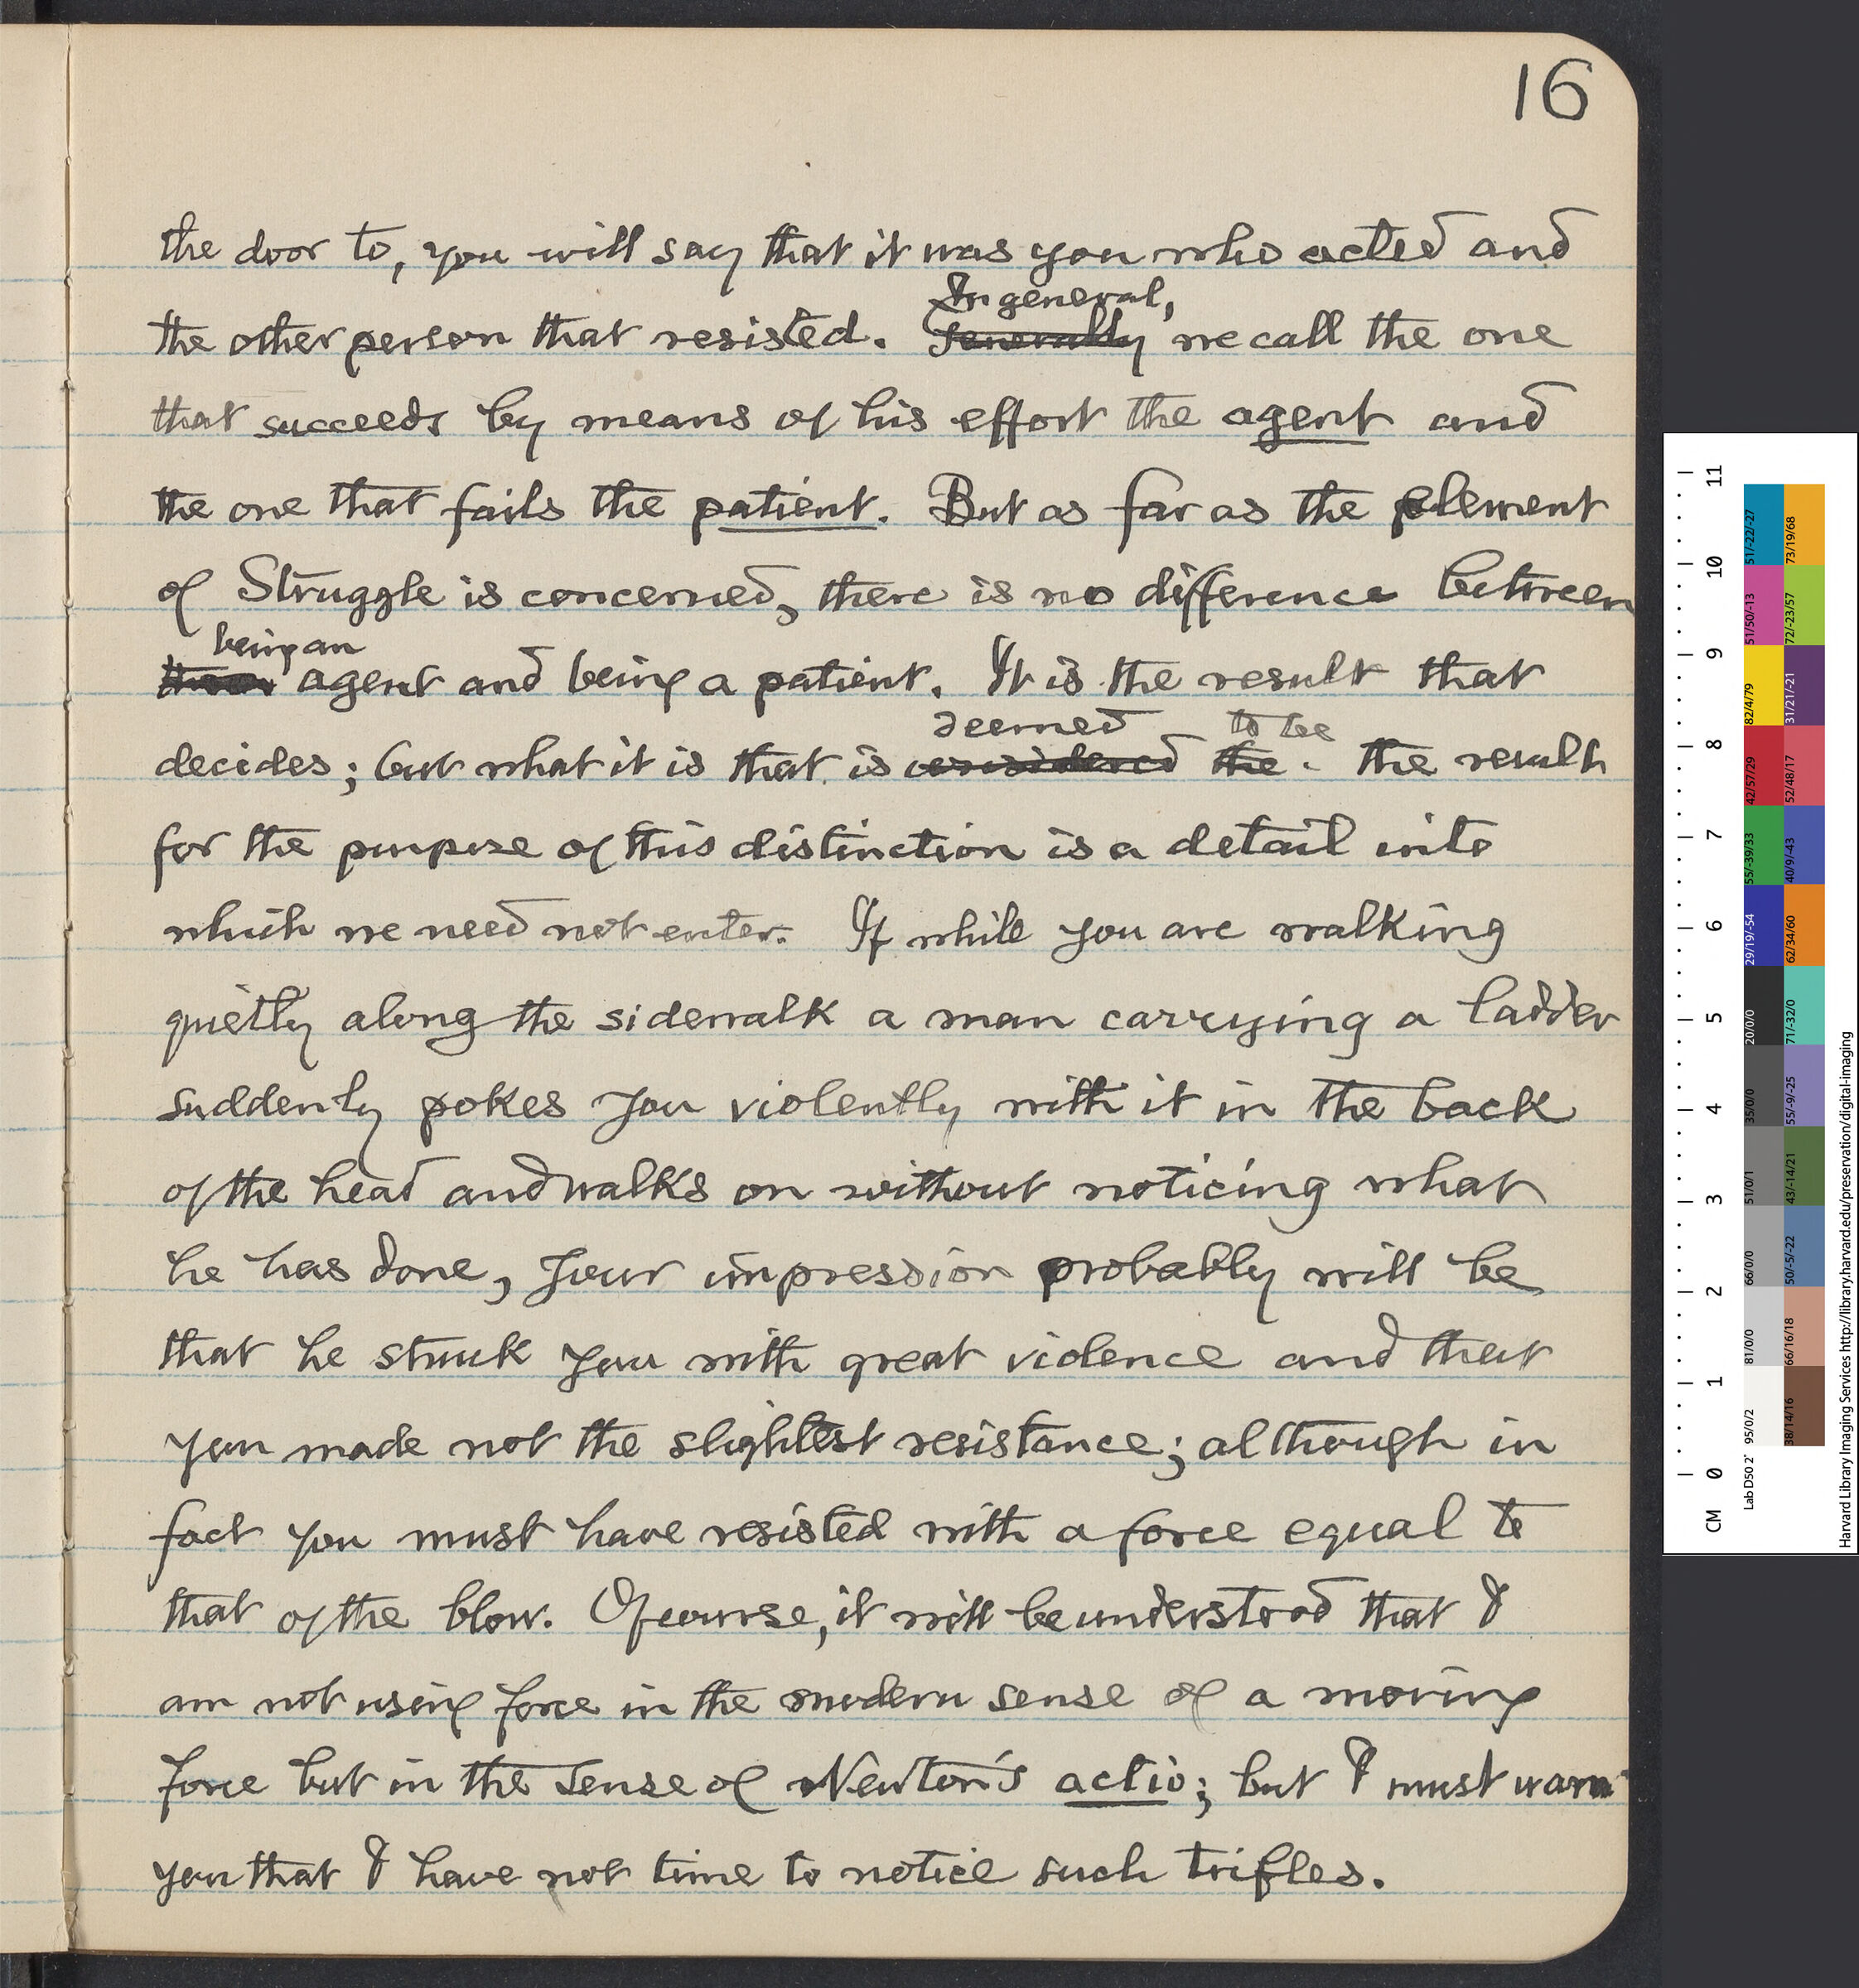 16
the door to, you will say that it was you who acted and
In general,
the other person that resisted. Generally we call the one
that succeeds by means of his effort the agent and
the one that fails the patient. But as far as the element
of Struggle is concerned, there is no difference between
being an
agent and being a patient. It is the result that
deemed to be
decides; but what it is that is considered the. the result
for the purpose of this distinction is a detail into
which we need not enter. If while you are walking
quietly along the sidewalk a man carrying a ladder
suddenly pokes you violently with it in the back
of the head and walks on without noticing what
he has done, your impression probably will be
that he struck you with great violence and that
you made not the slightest resistance; although in
fact you must have resisted with a force equal to
that of the blow. Of course, it will be understood that I
am not using force in the modern sense of a moving
force but in the sense of Newton's actio; but I must warn
you that I have not time to notice such trifles.
CM 0 1 2 3 4 5 6 7 8 9 10 11
Lab D50 2°
95/0/2 81/0/0 66/0/0 51/0/1 35/0/0 20/0/0 29/19/-54 55/-39/33 42/57/29 82/4/79 51/50/-13 51/-22/-27
38/14/16 66/16/18 50/-5/-22 43/-14/21 55/-9/-25 71/-32/0 62/34/60 40/9/-43 52/48/17 31/21/-21 72/-23/57 73/19/68
Harvard Library Imaging Services http://library.harvard.edu/preservation/digital-imaging